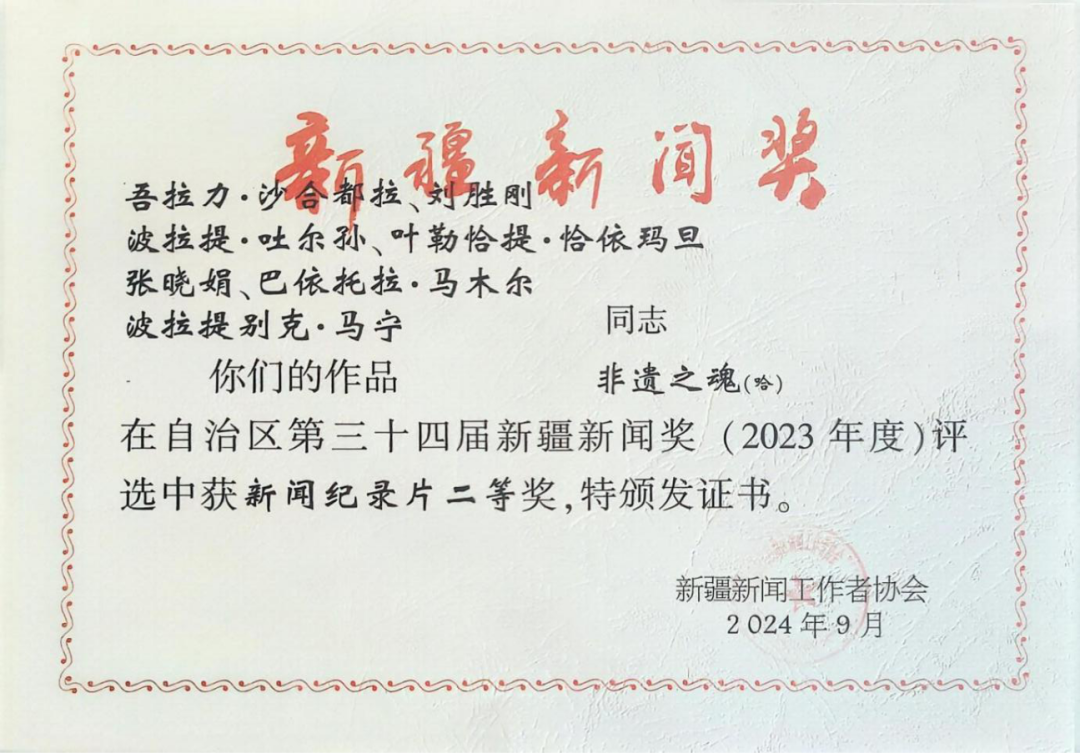 新疆新闻奖
吾拉力·沙合都拉、刘胜刚
波拉提·吐尔孙、叶勒恰提·恰依玛旦
张晓娟、巴依托拉·马木尔
波拉提别克·马宁 同志
你们的作品 非遗之魂(哈)
在自治区第三十四届新疆新闻奖（2023年度)评
选中获新闻纪录片二等奖,特颁发证书。
新疆新闻工作者协会
2024年9月